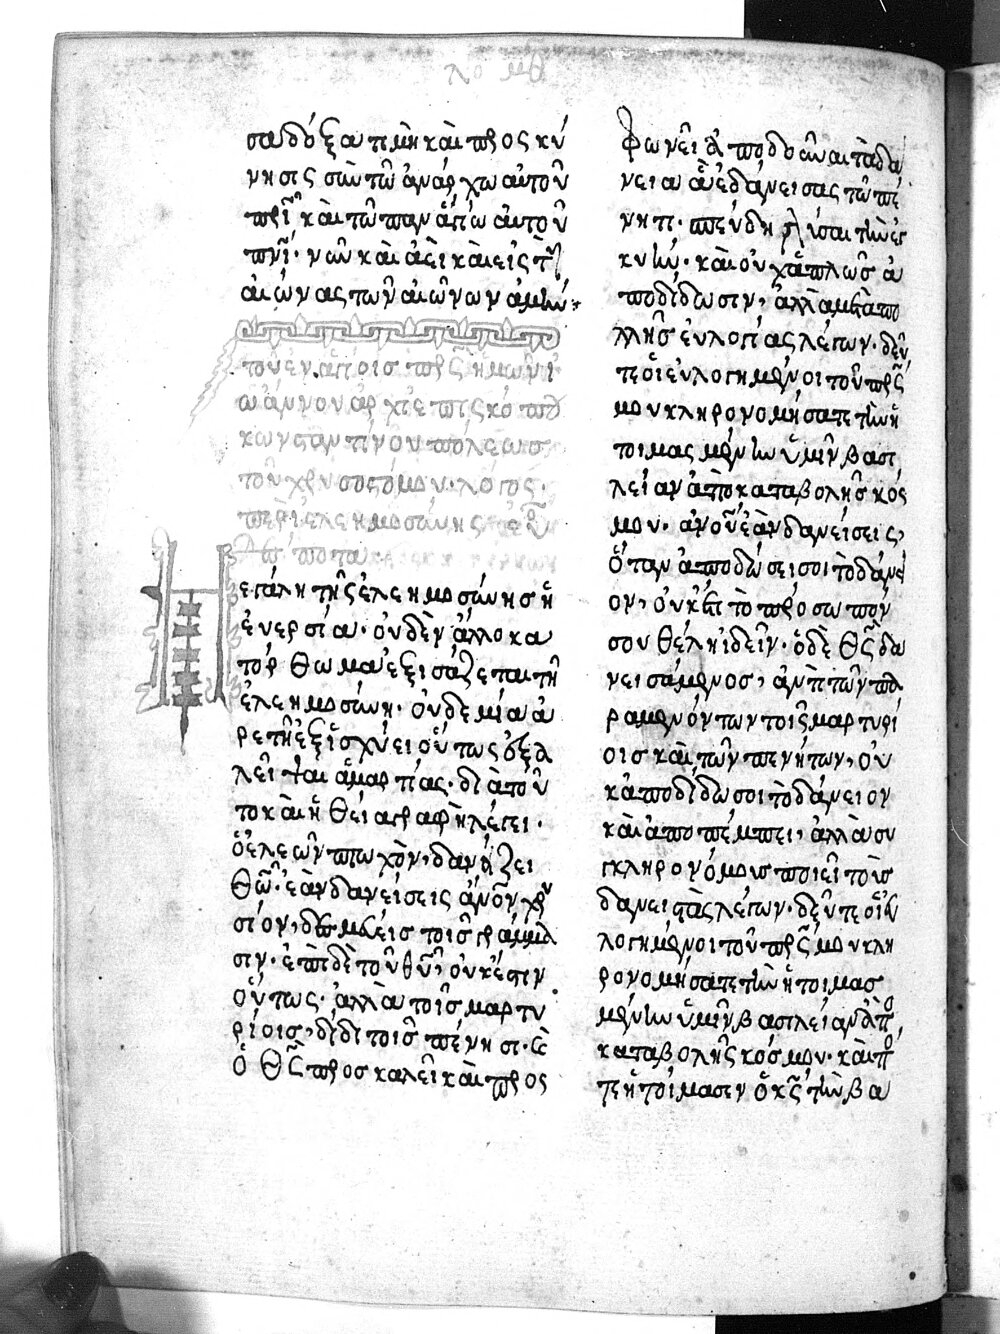 λο μθ
σα δόξα τιμὴ καὶ προσκύ
νησις σὺν τῶ ἀνάρχω αὐτοῦ
πρὶ καὶ τῶ παναγίω αὐτοῦ
πνι· νῦν καὶ ἀεὶ καὶ εἰς τοὺς
αἰῶνας τῶν αἰώνων ἀμήν:
τοῦ ἐν ἁγίοις πρς ἡμῶν ἰ
ωάννου ἀρχιεπισκόπου
κωνσταντίνου πόλεως
τοῦ χρυσοστόμου· λόγος·
περὶ ἐλεημοσύνης
μεγάλη τῆς ἐλεημοσύνης ἡ
ἐνεργεία· οὐδὲν ἄλλο κα
τόρθωμα ἐξισάζεται τῆ
ἐλεημοσύνη· οὐδεμία ἀ
ρετὴ ἐξισχύει οὕτως ἐξα
λεῖψαι ἁμαρτίας· διὰ τοῦ
το καὶ ἡ θεία γραφὴ λέγει·
ὁ ἐλεῶν πτωχὸν, δανείζει
θῶ· ἐὰν δανείσεις ἀνου χρυ
σίον, δεσμεῖς τοῖς γράμμα
σιν· ἐπὶ δὲ τοῦ θυ, οὐκ ἔστιν
οὕτως· ἀλλὰ τοῖς μαρτυ
ρίοις, δίδι τοῖς πένησι· καὶ
ὁ θς προσκαλεῖ καὶ προσ
φωνεῖ ἀποδοῦναι τὰ δα
νεια ἃ ἐδάνεισας τῶ πέ
νητι· πένδη
κυνω· καὶ οὐχ ἁπλῶς ἀ
ποδίδωσιν, ἀλλὰ μετὰ πο
λλῆς εὐλογίας λέγων· δεῦ
τε οἱ εὐλογημένοι τοῦ πρς
μου κληρονομήσατε τὴν ἡ
τοιμασμένην ὑμῖν βασι
λείαν ἀπὸ καταβολῆς κόσ
μου· ἀνου ἐὰν δανείσεις,
ὅταν ἀποδώσει σοι τὸ δάνει
ον, οὐκέτι τὸ πρόσωπον
σου θέλη ἰδεῖν· ὁ δὲ θς δα
νεισάμενος, ἀντὶ τῶν πα
ραμενόντων τοῖς μαρτυρί
οις καὶ τῶν πενήτων, οὐ
κ ἀποδίδωσοι τὸ δάνειον
καὶ ἀποπέμπει, ἀλλὰ συ
γκληρονόμους ποιεῖ τοὺς
δανειστὰς λέγων· δεῦτε οἱ εὐ
λογημένοι τοῦ πρς μου κλη
ρονομήσατε τὴν ἡτοιμασ
μένην ὑμῖν βασιλείαν ἀπὸ
καταβολῆς κόσμου· καὶ πό
τε ἡτοίμασεν ὁ κς τὴν βα